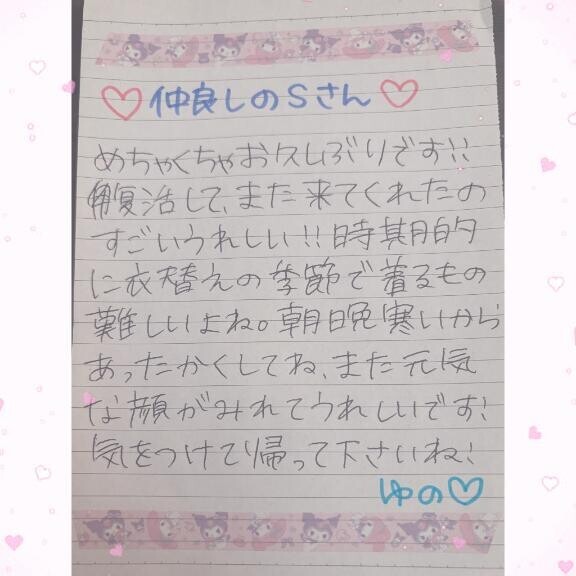 ♡仲良しのSさん♡
めちゃくちゃお久しぶりです!!
復活して、また来てくれたの
すごいうれしい!!時期的
に衣替えの季節で着るもの
難しいよね。朝晩寒いから
あったかくしてね、また元気
な顔がみれてうれしいです!
気をつけて帰って下さいね!
ゆの♡